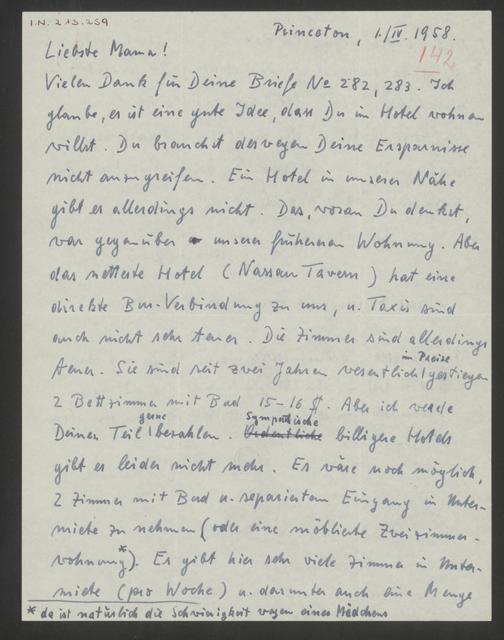 I.N. 213.259
Princeton, 1./IV. 1958.
142
Liebste Mama!
Vielen Dank für Deine Briefe No 282, 283. Ich
glaube, es ist eine gute Idee, dass Du im Hotel wohnen
willst. Du brauchst deswegen Deine Ersparnisse
nicht anzugreifen. Ein Hotel in unserer Nähe
gibt es allerdings nicht. Das, woran Du denkst,
war gegenüber unserer früheren Wohnung. Aber
das netteste Hotel (Nassau Tavern) hat eine
direkte Bus-Verbindung zu uns, u. Taxis sind
auch nicht sehr teuer. Die Zimmer sind allerdings
teuer. Sie sind seit zwei Jahren wesentlich im Preise gestiegen
2 Bettzimmer mit Bad 15–16 $. Aber ich werde
Deinen Teil gerne bezahlen. Sympathische Ordentliche billigere Hotels
gibt es leider nicht mehr. Es wäre noch möglich,
2 Zimmer mit Bad u. separiertem Eingang in Unter-
miete zu nehmen (oder eine möblierte Zweizimmer-
wohnung*). Es gibt hier sehr viele Zimmer in Unter-
miete (pro Woche) u. darunter auch eine Menge
* da ist natürlich die Schwierigkeit wegen eines Mädchens